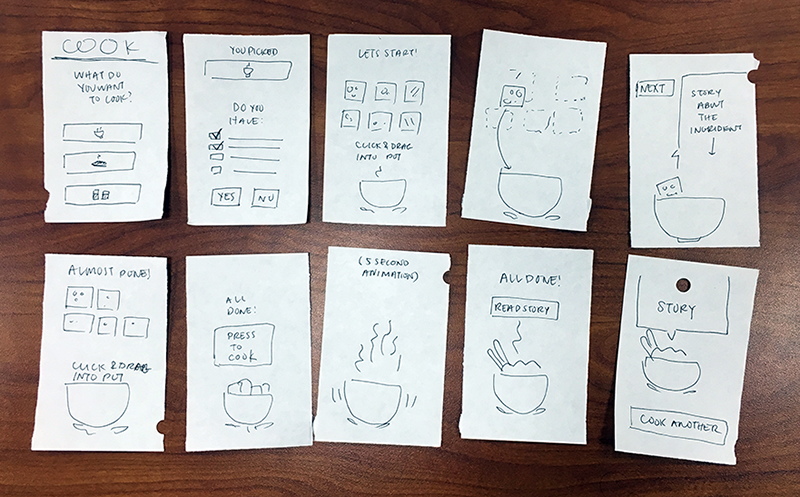 COOK
WHAT DO
YOU WANT
TO COOK?
YOU PICKED
DO YOU
HAVE:
YES
NO
LETS START!
CLICK & DRAG
INTO POT
NEXT
STORY
ABUT
THE
INGRIDENT
ALMOST DONE!
CLICK & DRAG
INTO POT
ALL
DONE!
PRESS
TO
COOK
(5 SECOND
ANIMATION)
ALL DONE!
READ STORY
STORY
COOK ANOTHER